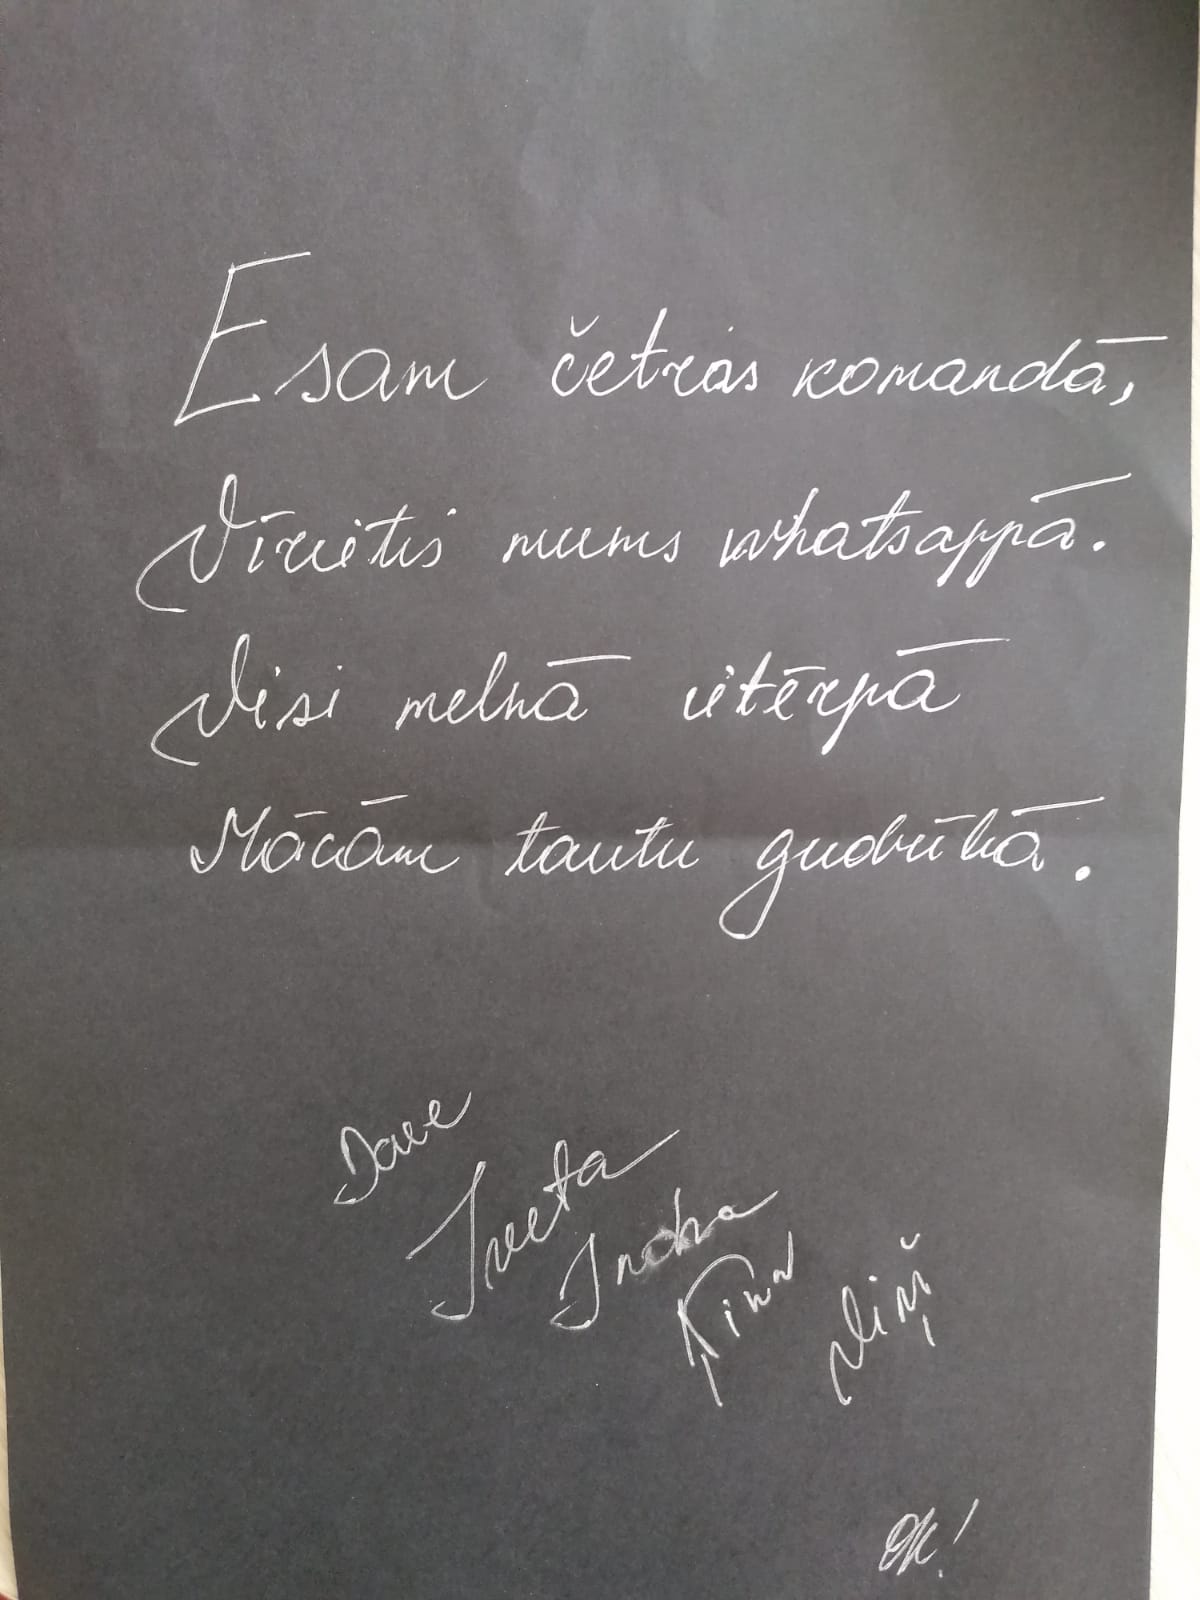 Esam četras komandā,
Vīrietis mums whatsappā.
Visi melnā ietērpā
Mācām tautu gudrībā.
Dace
Iveta
Indra
Viņš
OK!